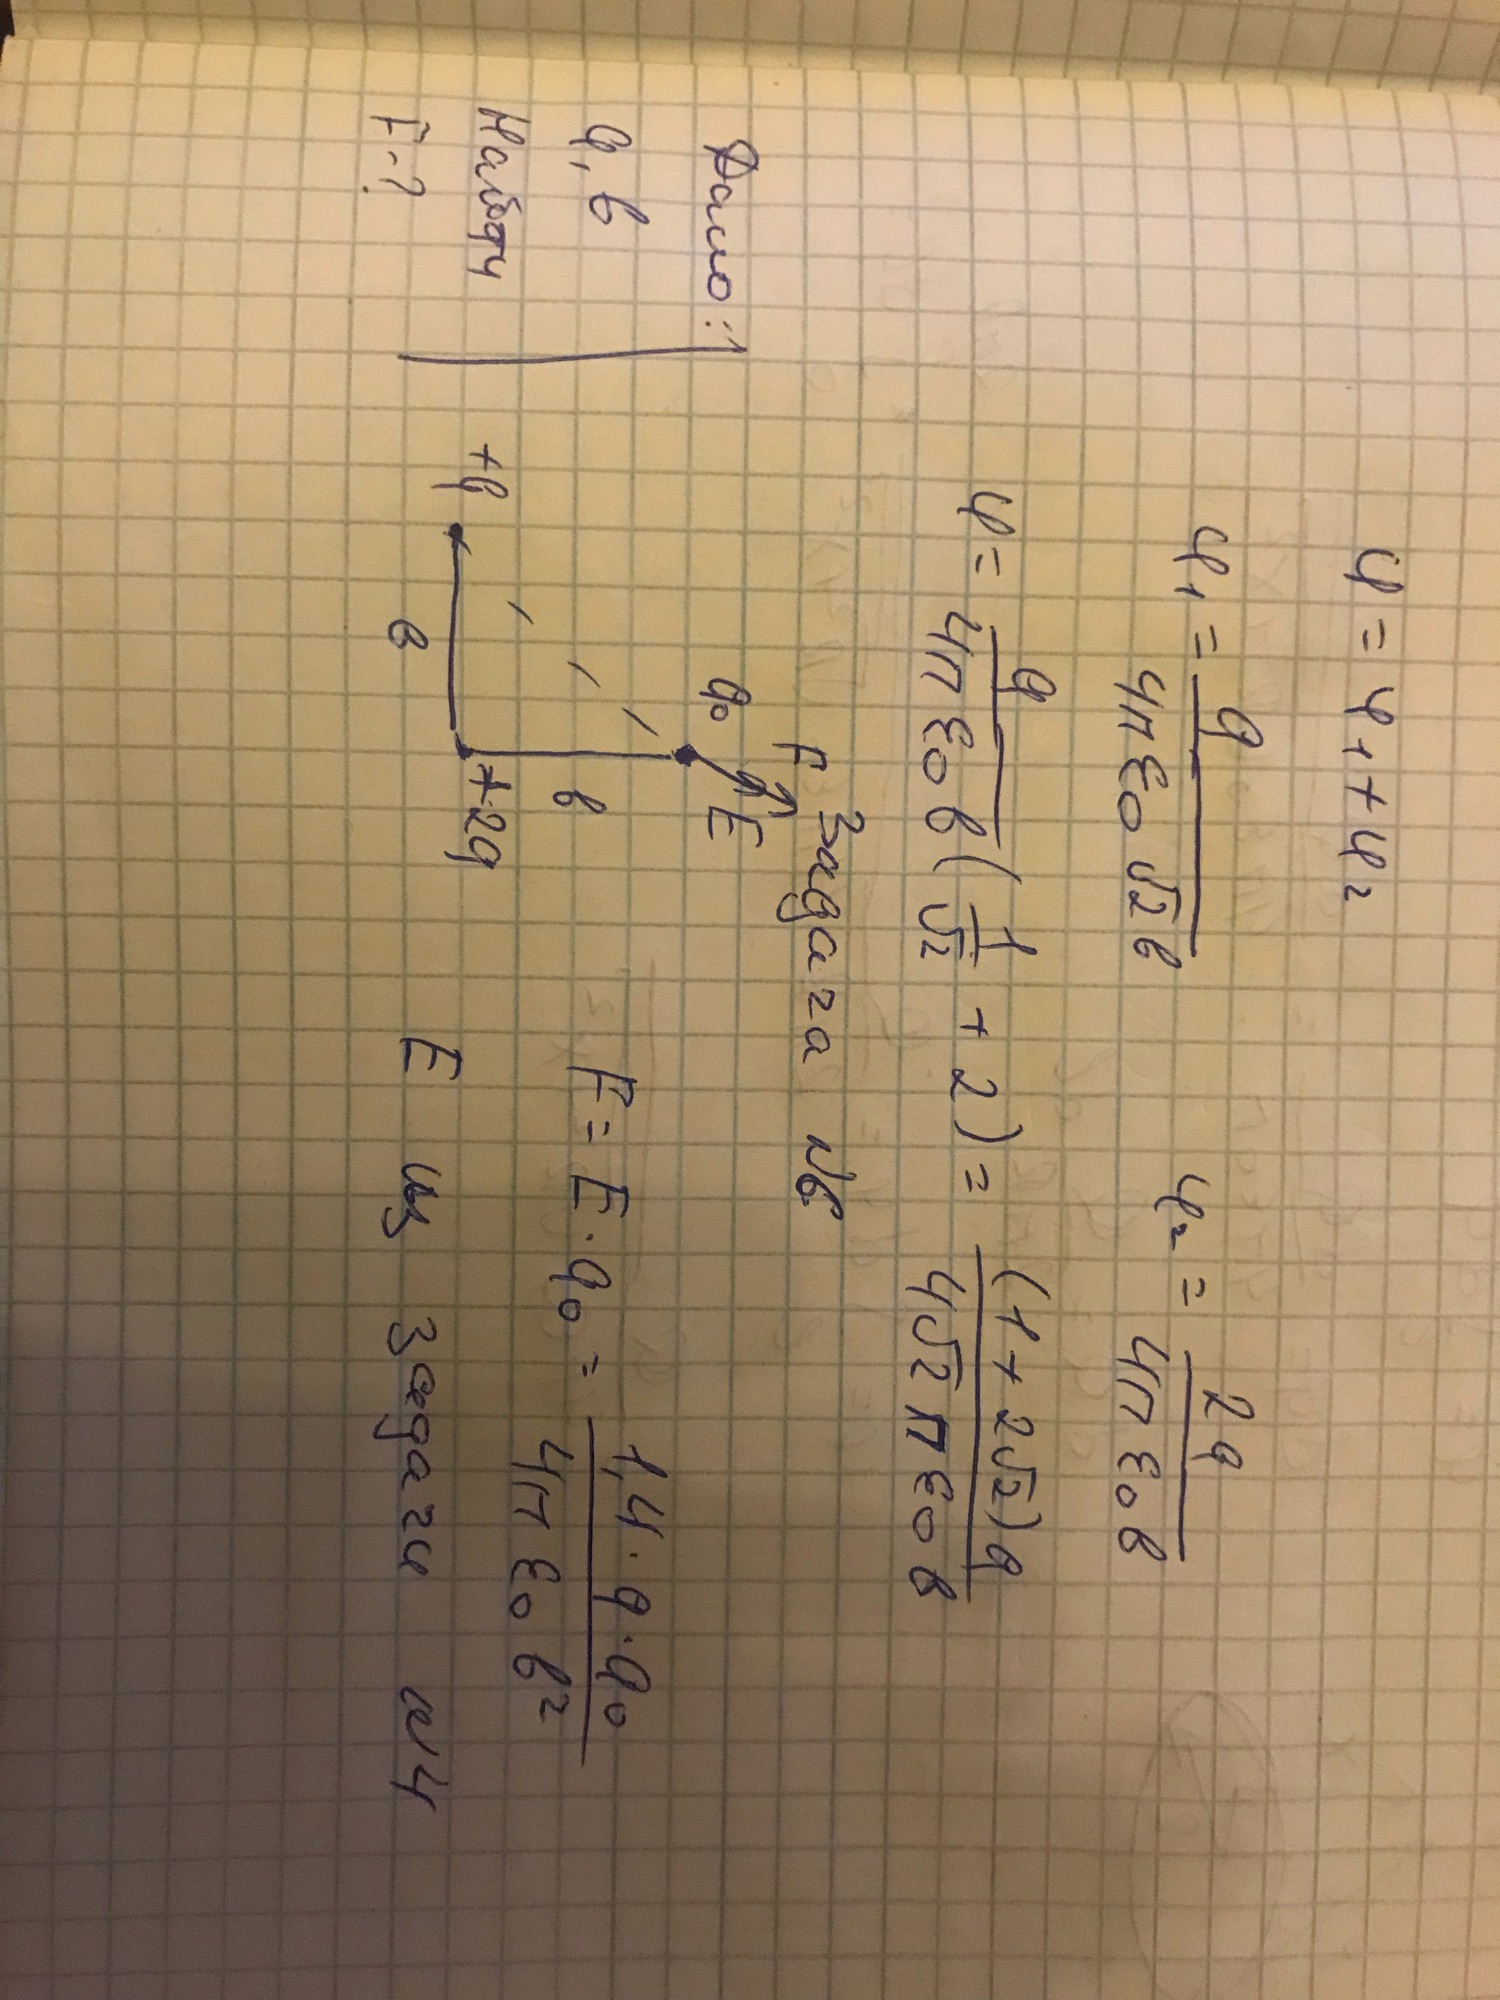 φ = φ₁ + φ₂
φ₁ = q / (4π ε₀ √2 b)    φ₂ = 2q / (4π ε₀ b)
φ = q / (4π ε₀ b) (1/√2 + 2) = (1 + 2√2) q / (4√2 π ε₀ b)
Задача №6
Дано:
q, b
Найти
F - ?
F
q₀
E
b
+q
+2q
b
F = E · q₀ = 1,4 · q · q₀ / (4π ε₀ b²)
E из задачи №4